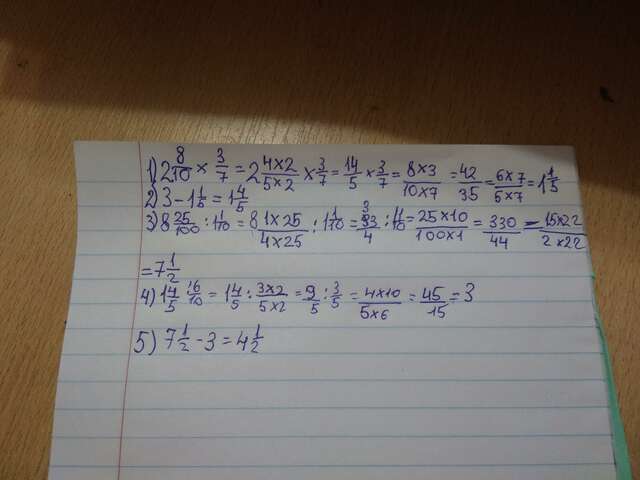 1) 2 8/10 × 3/7 = 2 4×2/5×2 × 3/7 = 14/5 × 3/7 = 8×3/10×7 = 42/35 = 6×7/5×7 = 1 1/5
2) 3 - 1 1/5 = 1 4/5
3) 8 25/100 : 1 1/10 = 8 1×25/4×25 : 1 1/10 = 33/4 : 11/10 = 25×10/100×1 = 330/44 = 15×22/2×22
= 7 1/2
4) 1 4/5 : 6/10 = 1 4/5 : 3×2/5×2 = 9/5 : 3/5 = 4×10/5×6 = 45/15 = 3
5) 7 1/2 - 3 = 4 1/2